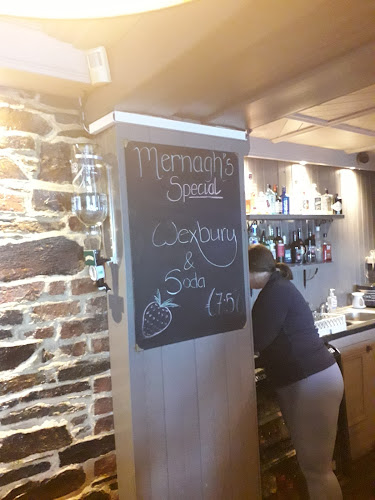 Mernagh's
Special
Wexbury
&
Soda
€7:50